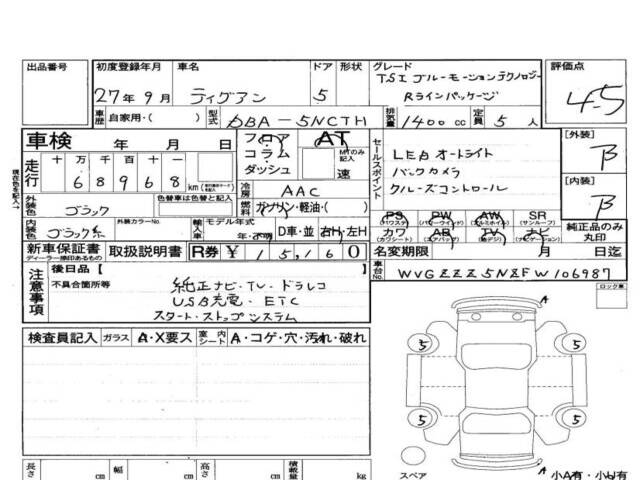 出品番号 初度登録年月 車名 ドア 形状 グレード 評価点
27年9月 ティグアン 5 TSI ブルーモーションテクノロジー 4.5
Rラインパッケージ
車歴 自家用・( ) 型式 DBA-5NCTH 排気量 1400cc 定員 5人
車検 年 月 日 フロア コラム ダッシュ AT MTのみ記入 速
[外装] B
走行 十万 千百十 68968 km
セールスポイント LEDオートライト
バックカメラ
クルーズコントロール
冷房 AAC
[内装] B
外装色 ブラック 色替車は色替と記入 燃料 ガソリン・軽油・( )
内装色 ブラック系 外装カラーNo. 輸入車 モデル年式 年・不明 D車・並 右H・左H
PS PW AW SR (サンルーフ)
カワ AB TV ナビ
純正品のみ丸印
新車保証書 ディーラー捺印あるもの 取扱説明書 R券 ¥15,160
名変期限 月 日
車台No. WVGZZZ5NZFW106987
注意事項 後日品[ ]
不具合箇所等 純正ナビ・TV・ドラレコ
USB充電・ETC
スタートストップシステム
ロック車
検査員記入 ガラス A・X要ス 室内シート A・コゲ・穴・汚れ・破れ
A
5 5
5 5
スペア
A
長さ cm 幅 cm 高さ cm 積載量 kg
小A有・小U有
現在色を記入↑